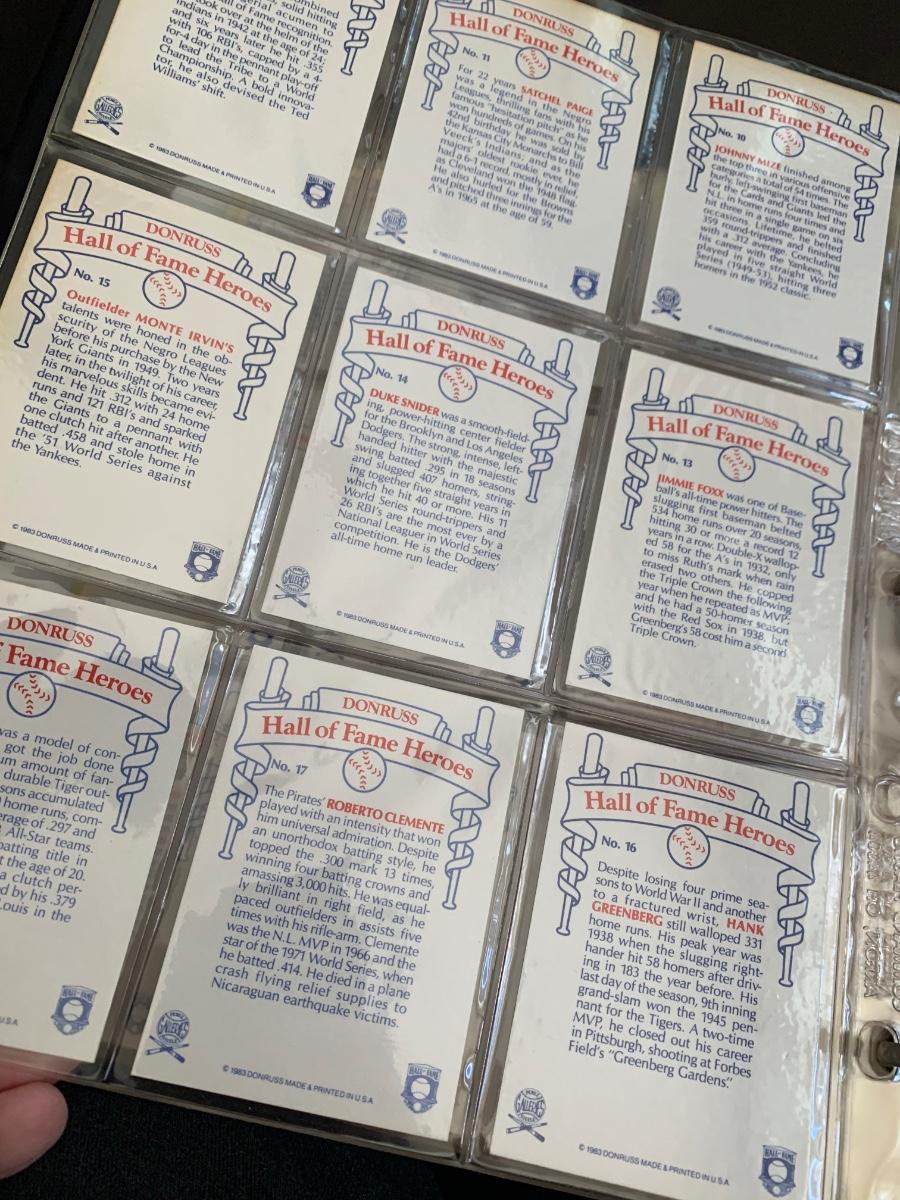 ombined
, solid hitting
erial acumen to
all of Fame recognition.
took over at the helm of the
Indians in 1942 at the age of 24;
and six years later he hit .355
with 106 RBI's, capped by a 4-
for-4 day in the pennant play-off
to lead the Tribe to a World
Championship. A bold innova-
tor, he also devised the Ted
Williams' shift.
© 1983 DONRUSS MADE & PRINTED IN U.S.A
DONRUSS
Hall of Fame Heroes
No. 11
For 22 years SATCHEL PAIGE
was a legend in the Negro
Leagues, thrilling fans with his
famous "hesitation pitch" as he
won hundreds of games. On his
42nd birthday he was sold by
the Kansas City Monarchs to Bill
Veeck's Indians; and as the
majors' oldest rookie ever, he
had a 6-1 record, mostly in relief
as Cleveland won the 1948 flag.
He also hurled for the Browns
and pitched three innings for the
A's in 1965 at the age of 59.
© 1983 DONRUSS MADE & PRINTED IN U.S.A
DONRUSS
Hall of Fame Heroes
No. 10
JOHNNY MIZE finished among
the top three in various offensive
categories a total of 54 times. The
burly, left-swinging first baseman
for the Cards and Giants led the
N.L. in home runs four times and
hit three in a single game on six
occasions. Lifetime, he belted
359 round-trippers and finished
with a .312 average. Concluding
his career with the Yankees, he
played in five straight World
Series (1949-53), hitting three
homers in the 1952 classic.
© 1983 DONRUSS MADE & PRINTED IN U.S.A
DONRUSS
Hall of Fame Heroes
No. 15
Outfielder MONTE IRVIN'S
talents were honed in the ob-
scurity of the Negro Leagues
before his purchase by the New
York Giants in 1949. Two years
later, in the twilight of his career,
his marvelous skills became evi-
dent. He hit .312 with 24 home
runs and 121 RBI's and sparked
the Giants to a pennant with
one clutch hit after another. He
batted .458 and stole home in
the '51 World Series against
the Yankees.
© 1983 DONRUSS MADE & PRINTED IN U.S.A
HALL OF FAME
DONRUSS
Hall of Fame Heroes
No. 14
DUKE SNIDER was a smooth-field-
ing, power-hitting center fielder
for the Brooklyn and Los Angeles
Dodgers. The strong, intense, left-
handed hitter with the majestic
swing batted .295 in 18 seasons
and slugged 407 homers, string-
ing together five straight years in
which he hit 40 or more. His 11
World Series round-trippers and
26 RBI's are the most ever by a
National Leaguer in World Series
competition. He is the Dodgers'
all-time home run leader.
GALLERIES
© 1983 DONRUSS MADE & PRINTED IN U.S.A
HALL OF FAME
DONRUSS
Hall of Fame Heroes
No. 13
JIMMIE FOXX was one of Base-
ball's all-time power hitters. The
slugging first baseman belted
534 home runs over 20 seasons,
hitting 30 or more a record 12
years in a row. Double-X wallop-
ed 58 for the A's in 1932, only
to miss Ruth's mark when rain
erased two others. He copped
the Triple Crown the following
year when he repeated as MVP;
and he had a 50-homer season
with the Red Sox in 1938, but
Greenberg's 58 cost him a second
Triple Crown.
GALLERIES
© 1983 DONRUSS MADE & PRINTED IN U.S.A
HALL OF FAME
DONRUSS
f Fame Heroes
was a model of con-
got the job done
um amount of fan-
durable Tiger out-
sons accumulated
home runs, com-
erage of .297 and
All-Star teams.
batting title in
t the age of 20.
a clutch per-
d by his .379
Louis in the
U.S.A
HALL OF FAME
DONRUSS
Hall of Fame Heroes
No. 17
The Pirates' ROBERTO CLEMENTE
played with an intensity that won
him universal admiration. Despite
an unorthodox batting style, he
topped the .300 mark 13 times,
winning four batting crowns and
amassing 3,000 hits. He was equal-
ly brilliant in right field, as he
paced outfielders in assists five
times with his rifle-arm. Clemente
was the N.L. MVP in 1966 and the
star of the 1971 World Series, when
he batted .414. He died in a plane
crash flying relief supplies to
Nicaraguan earthquake victims.
GALLERIES
© 1983 DONRUSS MADE & PRINTED IN U.S.A
HALL OF FAME
DONRUSS
Hall of Fame Heroes
No. 16
Despite losing four prime sea-
sons to World War II and another
to a fractured wrist, HANK
GREENBERG still walloped 331
home runs. His peak year was
1938 when the slugging right-
hander hit 58 homers after driv-
ing in 183 the year before. His
last day of the season, 9th inning
grand-slam won the 1945 pen-
nant for the Tigers. A two-time
MVP, he closed out his career
in Pittsburgh, shooting at Forbes
Field's "Greenberg Gardens."
GALLERIES
© 1983 DONRUSS MADE & PRINTED IN U.S.A
HALL OF FAME